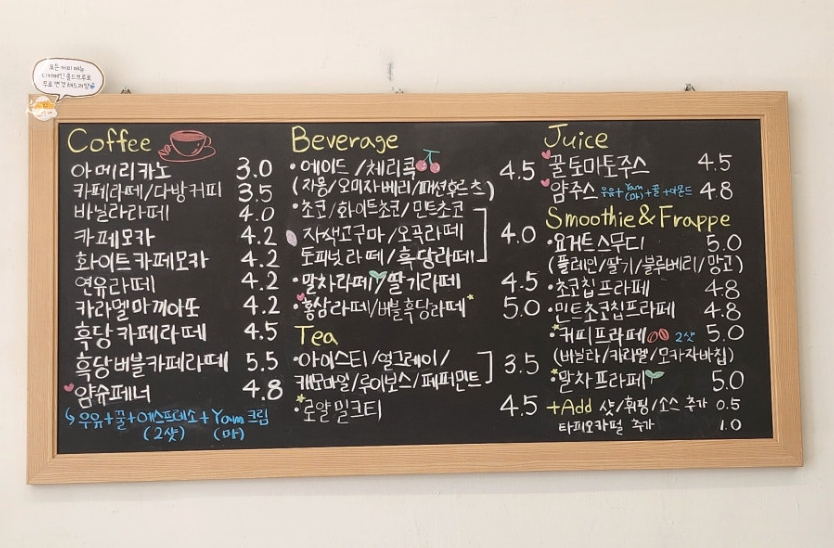 모든 커피 메뉴
디카페인 콜드브루로
무료 변경 해드려요
Coffee
아메리카노 3.0
카페라떼/다방커피 3.5
바닐라라떼 4.0
카페모카 4.2
화이트카페모카 4.2
연유라떼 4.2
카라멜마끼아또 4.2
흑당카페라떼 4.5
흑당버블카페라떼 5.5
얌슈페너 4.8
우유+꿀+에스프레소+Yam크림
(2샷) (마)
Beverage
·에이드/체리콕 4.5
(자몽/오미자베리/패션후르츠)
·초코/화이트초코/민트초코
자색고구마/오곡라떼 4.0
토피넛라떼/흑당라떼
·말차라떼/딸기라떼 4.5
·홍삼라떼/버블흑당라떼 5.0
Tea
·아이스티/얼그레이/
캐모마일/루이보스/페퍼민트 3.5
·로얄밀크티 4.5
Juice
꿀토마토주스 4.5
얌주스 우유+Yam(마)+꿀+아몬드 4.8
Smoothie&Frappe
·요거트스무디 5.0
(플레인/딸기/블루베리/망고)
·초코칩프라페 4.8
·민트초코칩프라페 4.8
·커피프라페 2샷 5.0
(바닐라/카라멜/모카자바칩)
·말차프라페 5.0
+Add 샷/휘핑/소스 추가 0.5
타피오카펄 추가 1.0